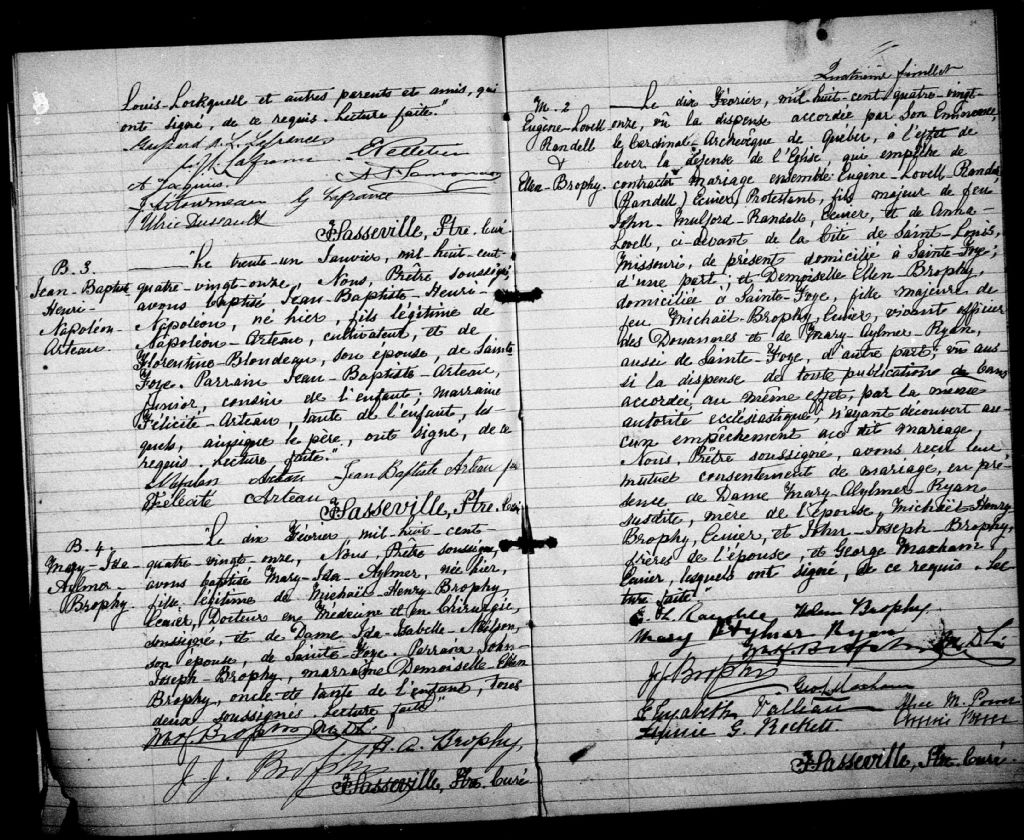 Louis-Lockquell et autres parents et amis, qui
ont signé, de ce requis. Lecture faite."
Pelletier
A. Jaques.
J. Letourneau G. Lafrance
Ulric Dussault
F.X. Lasseville, Ptre. Curé
B. 3.
Jean-Baptiste
Henri-
Napoléon-
Arteau.
"Le trente-un Janvier, mil-huit-cent-
quatre-vingt-onze, Nous, Prêtre soussigné,
avons baptisé Jean-Baptiste-Henri-
Napoléon, né hier, fils légitime de
Napoléon-Arteau, cultivateur, et de
Florentine-Blondeau, son épouse, de Sainte-
Foye. Parrain Jean-Baptiste-Arteau,
junior, cousin de l'enfant; marraine
Félicité-Arteau, tante de l'enfant, les-
quels, ainsi que le père, ont signé, de ce
requis. Lecture faite."
Napoléon Arteau Jean Baptiste Arteau jr
Félicité Arteau
F.X. Lasseville, Ptre. Curé
B. 4.
Mary-Ida-
Aylmer
Brophy.
"Le dix Février mil-huit-cent-
quatre vingt-onze, Nous, Prêtre soussigné,
avons baptisé Mary-Ida-Aylmer, née hier,
fille légitime de Michaël-Henry-Brophy,
Ecuier, Docteur en Médecine et en Chirurgie,
soussigné, et de Dame Ida-Isabelle-Neilson,
son épouse, de Sainte-Foye. Parrain John-
Joseph-Brophy, marraine Demoiselle Ellen
Brophy, oncle et tante de l'enfant, tous
deux soussignés. Lecture faite."
Brophy
H. A. Brophy,
J. J. Brophy
F.X. Lasseville, Ptre. Curé
Quatrième feuillet
M. 2
Eugène-Lovell
Randell
&
Ellen-Brophy.
Le dix Février, mil huit cent quatre-vingt-
onze, vû la dispense accordée par Son Eminence
le Cardinal-Archevêque de Québec, à l'effet de
lever la défense de l'Eglise, qui empêche de
contracter mariage ensemble Eugène-Lovell-Randall
(Randell) Ecuier, Protestant, fils majeur de feu
John-Mulford-Randell, Ecuier, et de Anna-
Lovell, ci-devant de la Cité de Saint-Louis,
Missouri, de présent domicilié à Sainte-Foye;
d'une part; et Demoiselle Ellen-Brophy,
domiciliée à Sainte-Foye, fille majeure de
feu Michaël-Brophy, Ecuier, vivant officier
des Douannes et de Mary-Aylmer-Ryan,
aussi de Sainte-Foye, d'autre part; vû aus-
si la dispense de toute publication de bans
accordée, au même effet, par la même
autorité ecclésiastique; n'ayant découvert au-
cun empêchement au dit mariage,
Nous, Prêtre soussigné, avons reçu leur
mutuel consentement de mariage, en pré-
sence de Dame Mary-Aylmer-Ryan
susdite, mère de l'épouse, Michaël-Henry-
Brophy, Ecuier, et John-Joseph-Brophy,
frères de l'épouse, et George Maxham
Ecuier, lesquels ont signé, de ce requis. Lec-
ture faite."
E. L. Randell Helen Brophy
Mary Aylmer Ryan
Brophy
J J Brophy
Geo Maxham
Elizabeth Vallieau Alice M. Power
G. Rockett
F.X. Lasseville, Ptre. Curé.